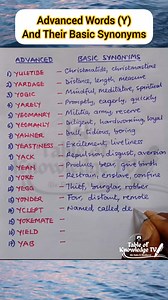 Advanced Words (Y)
And Their Basic Synonyms
ADVANCED BASIC SYNONYMS
1) YULETIDE - Christmastide, Christmastime
2) YARDAGE - Distance, length, measure
3) YOGIC - Mindful, meditative, spiritual
4) YARELY - Promptly, eagerly, quickly
5) YEOMANRY - Militia, army reserve
6) YEOMANLY - Diligent, hardworking, loyal
7) YAWNER - Dull, tedious, boring
8) YEASTINESS - Excitement, liveliness
9) YACK - Repulsion, disgust, aversion
10) YEAN - Produce, bear, give birth
11) YOKE - Restrain, enslave, confine
12) YEGG - Thief, burglar, robber
13) YONDER - Far, distant, remote
14) YCLEPT - Named called de
15) YOKEMATE -
16) YIELD -
17) YAB
Table of
Knowledge TV